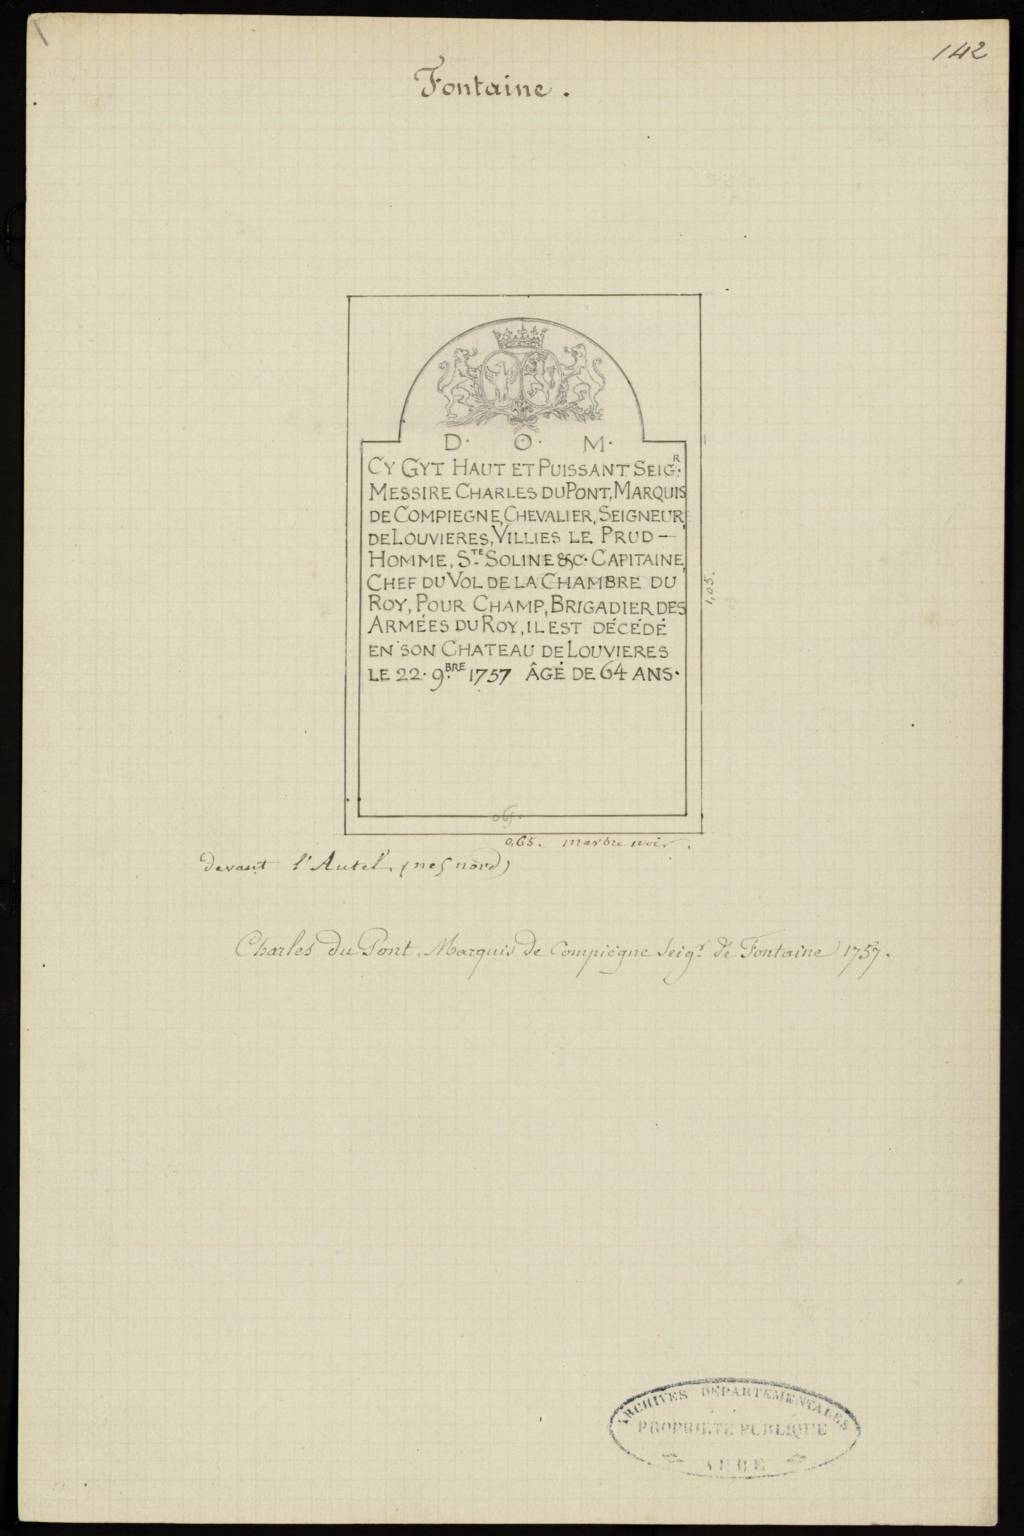 142
Fontaine.
D. O. M.
CY GYT HAUT ET PUISSANT SEIG.R
MESSIRE CHARLES DU PONT, MARQUIS
DE COMPIEGNE, CHEVALIER, SEIGNEUR
DE LOUVIERES, VILLIES LE PRUD-
HOMME, S.TE SOLINE &C. CAPITAINE,
CHEF DU VOL DE LA CHAMBRE DU
ROY, POUR CHAMP, BRIGADIER DES
ARMÉES DU ROY, IL EST DÉCÉDÉ
EN SON CHATEAU DE LOUVIERES
LE 22. 9.BRE 1757 ÂGÉ DE 64 ANS.
1,05.
0,65. marbre noir.
devant l'Autel, (nef nord)
Charles du Pont, Marquis de Compiègne Seigr. de Fontaine 1757.
ARCHIVES DÉPARTEMENTALES
PROPRIÉTÉ PUBLIQUE